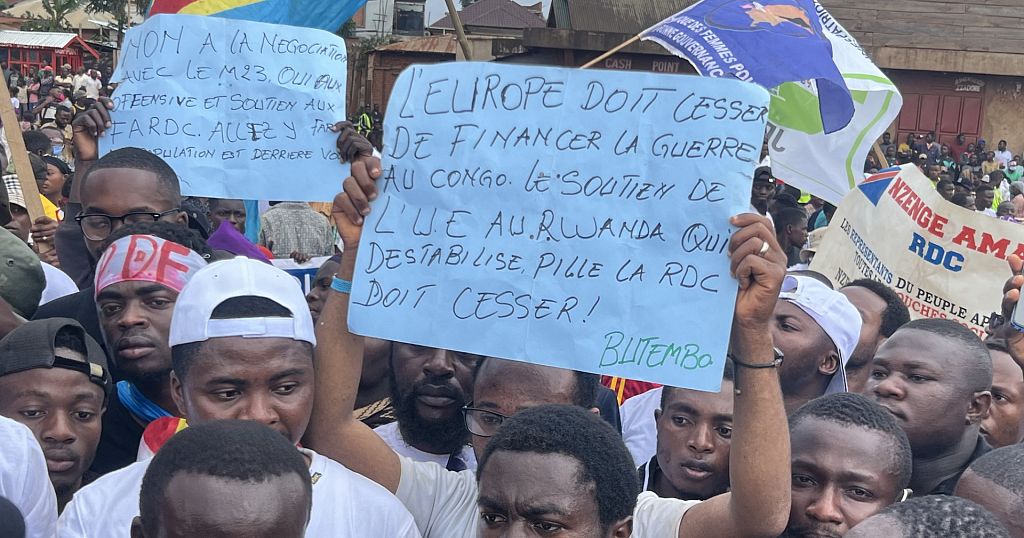 NON A LA NEGOCIATION
AVEC LE M23. OUI AUX
OFFENSIVE ET SOUTIEN AUX
FARDC. ALLEZ Y
POPULATION EST DERRIERE
L'EUROPE DOIT CESSER
DE FINANCER LA GUERRE
AU CONGO. LE SOUTIEN DE
L'U.E AU.RWANDA QUI
DESTABILISE, PILLE LA RDC
DOIT CESSER!
BUTEMBO
DES FEMMES POUR
BONNE GOUVERNANCE
CASH POINT
NZENGE AMA
RDC
LES REPRESENTANTS DU PEUPLE
RDF